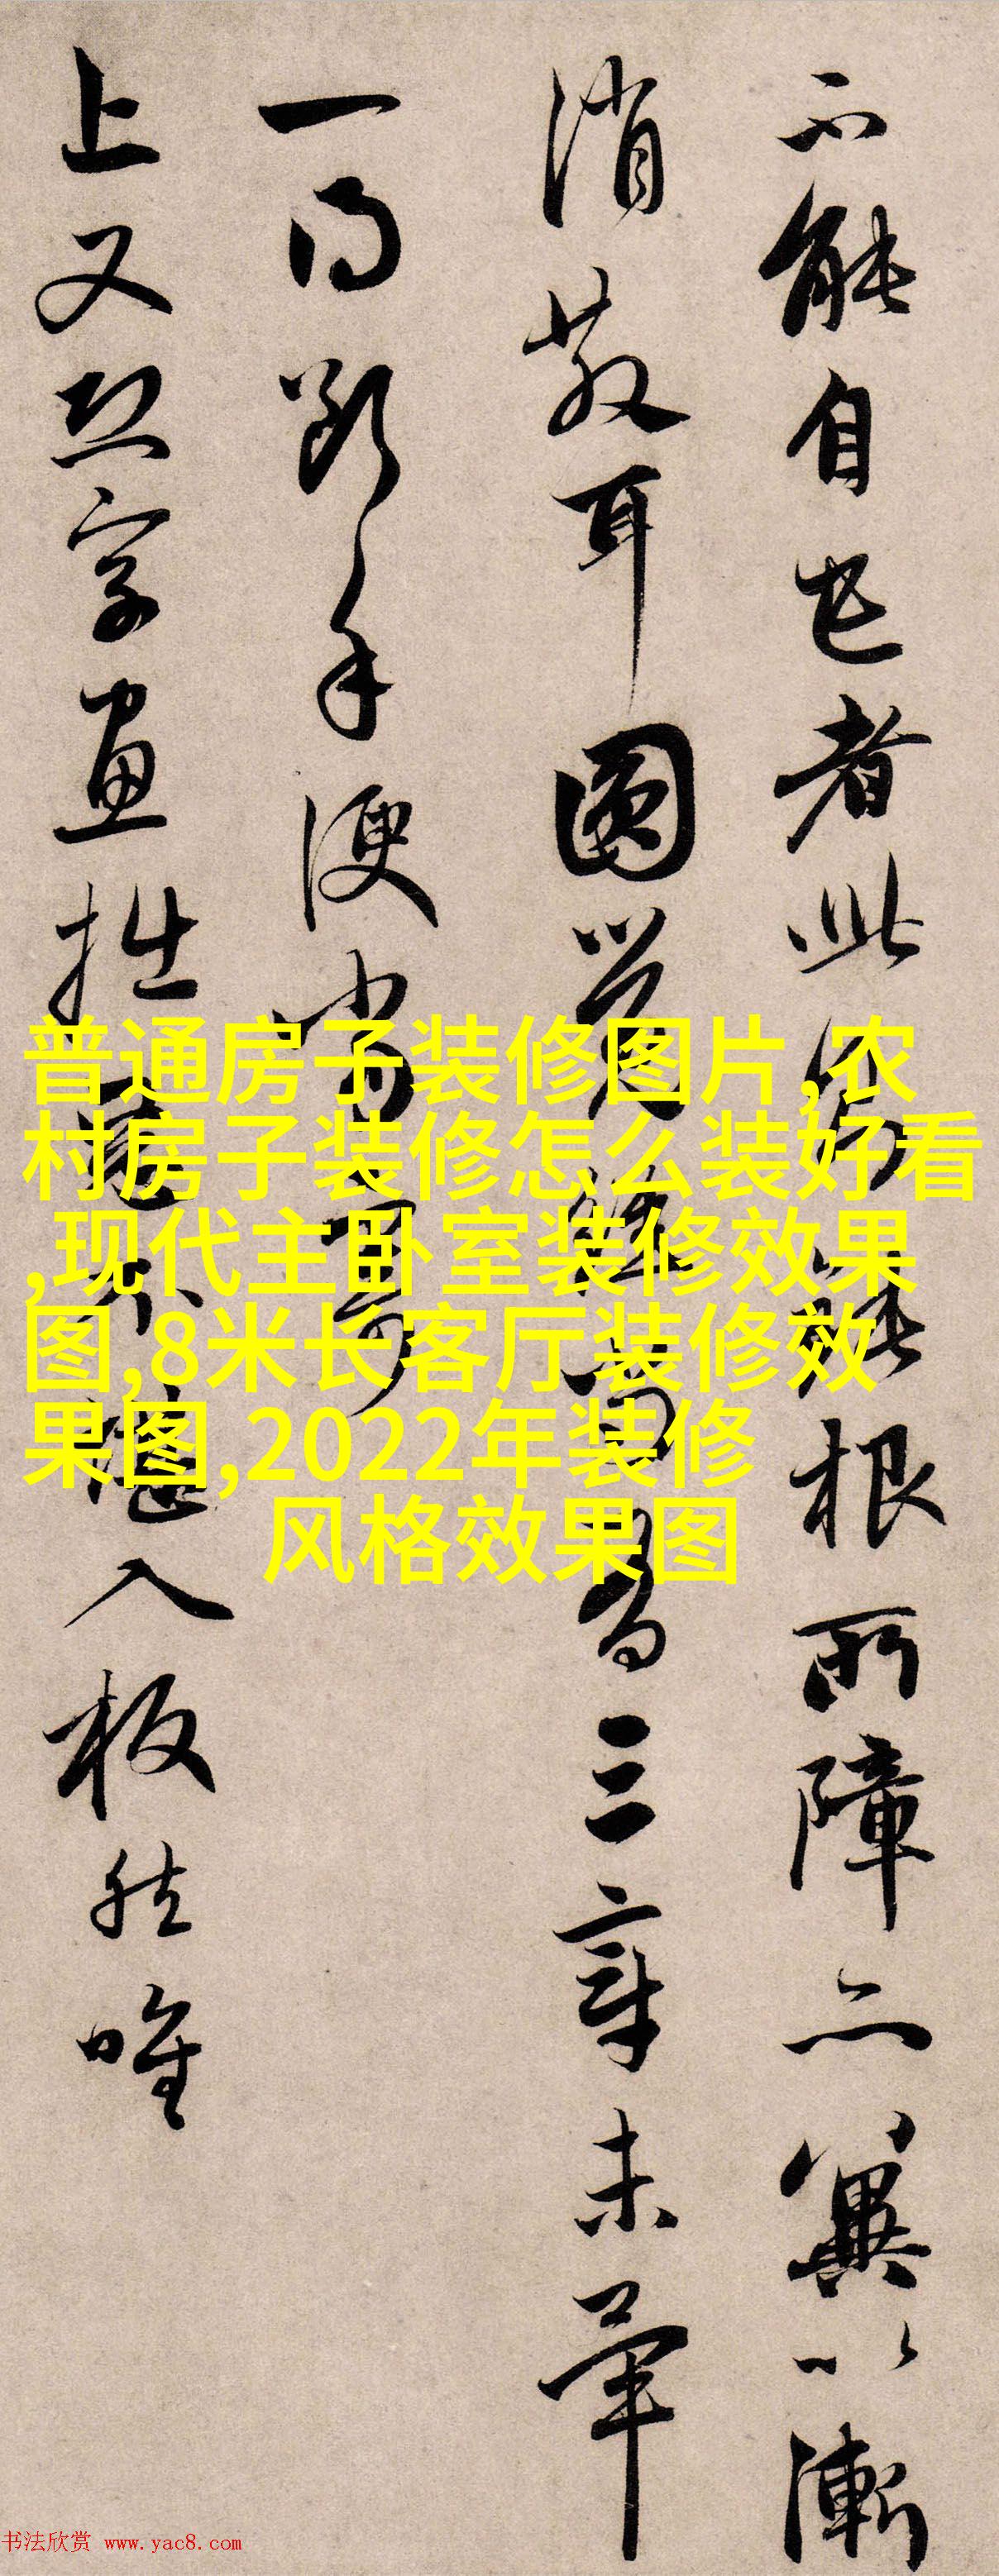 不能自已者此多生結根所障亦冀以漸
消散耳圓覺
為三章未畢
一得斷手便當寄
上又恐字畫拙
入板然唯
普通房子装修图片,农
村房子装修怎么装好看
,现代主卧室装修效果
图,8米长客厅装修效
果图,2022年装修
风格效果图
书法欣赏 www.yac8.com